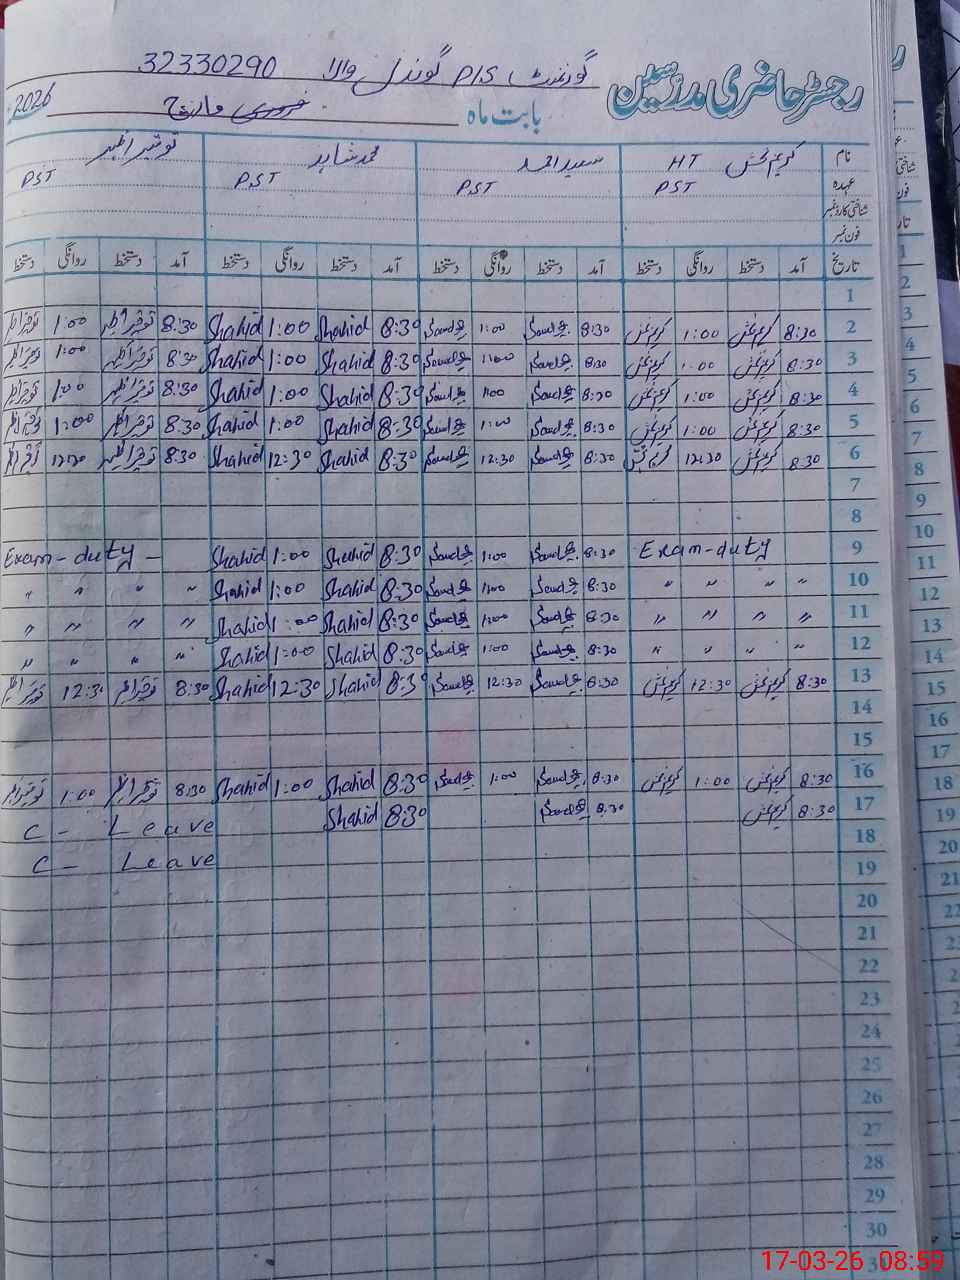 رجسٹر حاضری مدرسین گورنمنٹ P/S گوندل والا 32330290
بابت ماہ فروری مارچ 2026
نام کریم بخش HT سعید احمد محمد شاہد توقیر اظہر
عہدہ PST PST PST PST
شناختی کارڈ نمبر
فون نمبر
تاریخ آمد دستخط روانگی دستخط آمد دستخط روانگی دستخط آمد دستخط روانگی دستخط آمد دستخط روانگی دستخط
1
2 8:30 کریم بخش 1:00 کریم بخش 8:30 Saeed 1:00 Saeed 8:30 Shahid 1:00 Shahid 8:30 توقیر اظہر 1:00 توقیر اظہر
3 8:30 کریم بخش 1:00 کریم بخش 8:30 Saeed 1:00 Saeed 8:30 Shahid 1:00 Shahid 8:30 توقیر اظہر 1:00 توقیر اظہر
4 8:30 کریم بخش 1:00 کریم بخش 8:30 Saeed 1:00 Saeed 8:30 Shahid 1:00 Shahid 8:30 توقیر اظہر 1:00 توقیر اظہر
5 8:30 کریم بخش 1:00 کریم بخش 8:30 Saeed 1:00 Saeed 8:30 Shahid 1:00 Shahid 8:30 توقیر اظہر 1:00 توقیر اظہر
6 8:30 کریم بخش 12:30 کریم بخش 8:30 Saeed 12:30 Saeed 8:30 Shahid 12:30 Shahid 8:30 توقیر اظہر 12:30 توقیر اظہر
7
8
9 Exam-duty 8:30 Saeed 1:00 Saeed 8:30 Shahid 1:00 Shahid Exam-duty -
10 " " " " 8:30 Saeed 1:00 Saeed 8:30 Shahid 1:00 Shahid " " " "
11 " " " " 8:30 Saeed 1:00 Saeed 8:30 Shahid 1:00 Shahid " " " "
12 " " " " 8:30 Saeed 1:00 Saeed 8:30 Shahid 1:00 Shahid " " " "
13 8:30 کریم بخش 12:30 کریم بخش 8:30 Saeed 12:30 Saeed 8:30 Shahid 12:30 Shahid 8:30 توقیر اظہر 12:30 توقیر اظہر
14
15
16 8:30 کریم بخش 1:00 کریم بخش 8:30 Saeed 1:00 Saeed 8:30 Shahid 1:00 Shahid 8:30 توقیر اظہر 1:00 توقیر اظہر
17 8:30 کریم بخش 8:30 Saeed 8:30 Shahid C - Leave
18 C - Leave
19
20
21
22
23
24
25
26
27
28
29
30
17-03-26 08:59